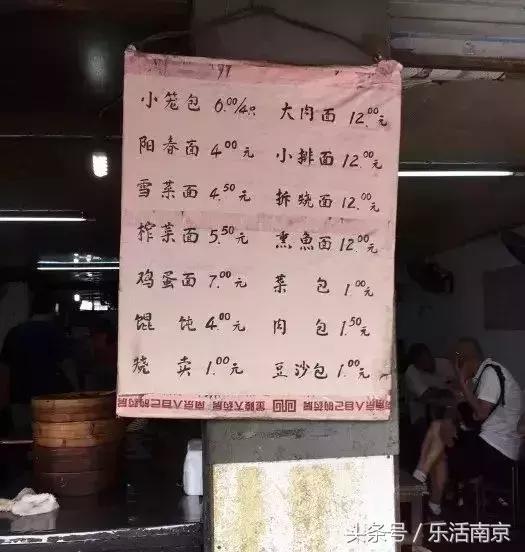 小笼包 6.00/4只
阳春面 4.00元
雪菜面 4.50元
榨菜面 5.50元
鸡蛋面 7.00元
馄饨 4.00元
烧卖 1.00元
大肉面 12.00元
小排面 12.00元
拆烧面 12.00元
熏魚面 12.00元
菜包 1.00元
肉包 1.50元
豆沙包 1.00元
南京人自己的药房 金陵大药房
头条号/乐活南京